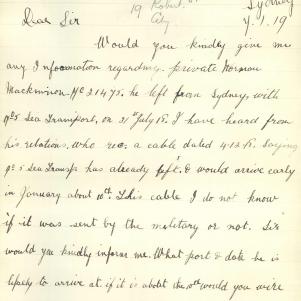 19 Robert St
City
Sydney
7.1.19
Dear Sir
Would you kindly give me
any Information regarding private Norman
Mackinnon No 21475. he left from Sydney, with
No 5 Sea Transport, on 21st July 18. I have heard from
his relations, who rec. a cable dated 4.12.18. saying
No 5 Sea Transp has already left & would arrive early
in January about 10th. This cable I do not know
if it was sent by the military or not. Sir
would you kindly inform me. What port & date he is
likely to arrive at. if it is about the 10th would you wire